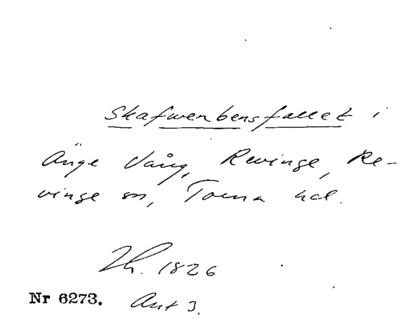 Skafwenbensfallet i
Änge Vång, Revinge, Re-
vinge sn, Torna hd.
Lh. 1826
Nr 6273. Akt 3.